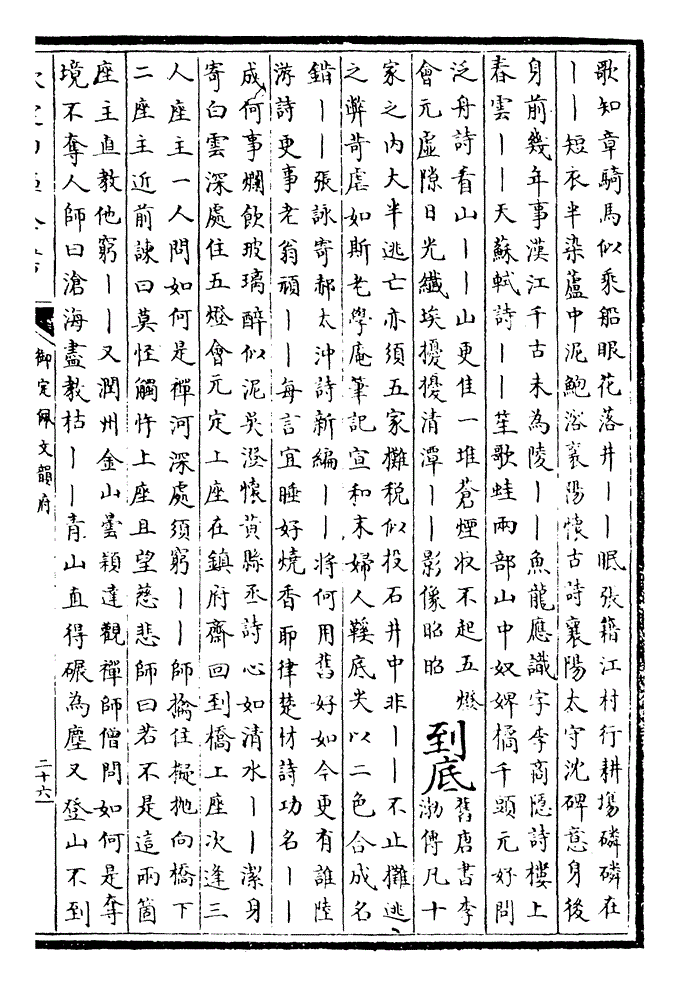 歌知章騎馬似乘船眼花落井丨丨眠張籍江村行耕塲磷磷在
丨丨短衣半染蘆中泥鮑溶襄陽懷古詩襄陽太守沈碑意身後
身前幾年事漢江千古未為陵丨丨魚龍應識字李商隱詩樓上
春雲丨丨天蘇軾詩丨丨笙歌蛙兩部山中奴婢橘千頭元好問
泛舟詩看山丨丨山更佳一堆蒼煙收不起五燈
會元虛隙日光纖埃擾擾清潭丨丨影像昭昭
到底
舊唐書李
渤傳凡十
家之内大半逃亡亦須五家攤税似投石井中非丨丨不止攤逃
之弊苛虐如斯老學庵筆記宣和末婦人鞵底尖以二色合成名
錯丨丨張詠寄郝太沖詩新編丨丨將何用舊好如今更有誰陸
游詩更事老翁頑丨丨每言宜睡好燒香耶律楚材詩功名丨丨
成何事爛飲玻璃醉似泥吳澄懷黄縣丞詩心如清水丨丨潔身
寄白雲深處住五燈會元定上座在鎮府齋回到橋上座次逢三
人座主一人問如何是禪河深處須窮丨丨師擒住擬抛向橋下
二座主近前諫曰莫怪觸忤上座且望慈悲師曰若不是這兩箇
座主直教他窮丨丨又潤州金山曇穎達觀禪師僧問如何是奪
境不奪人師曰滄海盡教枯丨丨青山直得碾為塵又登山不到
御定佩文韻府
二十六